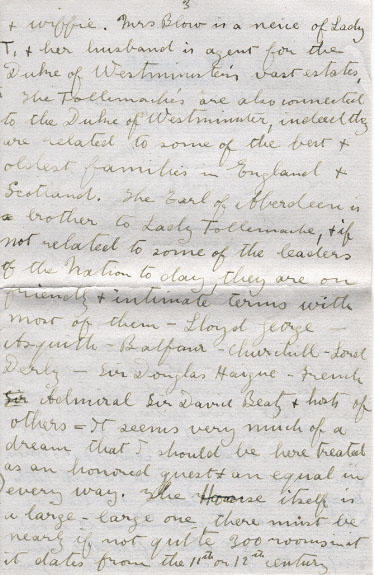 3
& wiffie. Mrs Blow is a neice of Lady
T, & her husband is agent for the
Duke of Westminister's vast estates,
The Tollemache's are also connected
to the Duke of Westminster, indeed they
are related to some of the best &
oldest families in England &
Scotland. The Earl of Aberdeen is
a brother to Lady Tollemache, & if
not related to some of the leaders
of the Nation to day, they are on
friendly & intimate terms with
most of them - Lloyd George -
Asquith - Balfour - Churchill - Lord
Derby - Sir Douglas Haigue - French
Sir Admiral Sir David Beaty & hosts of
others = It seems very much of a
dream that I should be here treated
as an honored guest & an equal in
every way. The House itself is
a large - large one, there must be
nearly if not quite 300 rooms in it
it dates from the 11th or 12th century